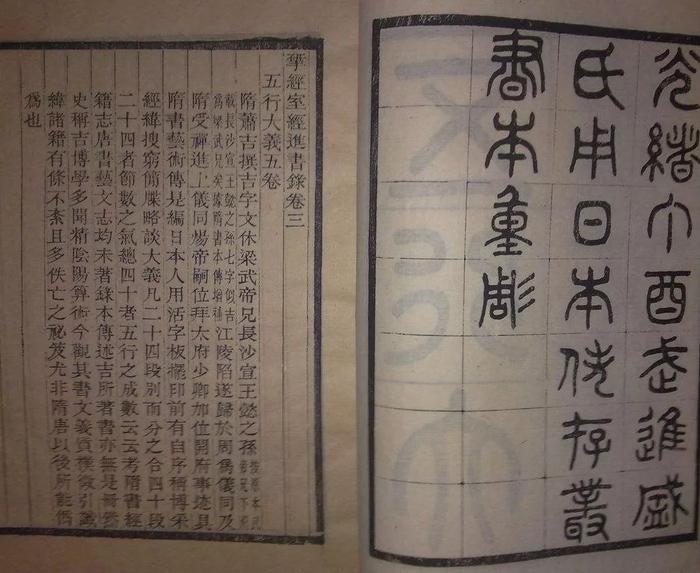 光緒丁酉武進盛
氏用日本佚存叢
書本重彫
揅經室經進書錄卷三
五行大義五卷
隋蕭吉撰吉字文休梁武帝兄長沙宣王懿之孫
載長沙宣王懿之孫七字似吉
爲梁武兄矣據隋書本傳增補
江陵陷遂歸於周爲儀同及
隋受禪進上儀同煬帝嗣位拜太府少卿加位開府事蹟具
隋書藝術傳是編日本人用活字板擺印前有自序稱博采
經緯搜窮簡牒略談大義凡二十四段別而分之合四十段
二十四者節數之氣總四十者五行之成數云云考隋書經
籍志唐書藝文志均未著錄本傳述吉所著書亦無是冊然
史稱吉博學多聞精陰陽算術今觀其書文義質樸徵引讖
緯諸籍有條不紊且多佚亡之祕笈尤非隋唐以後所能僞
爲也